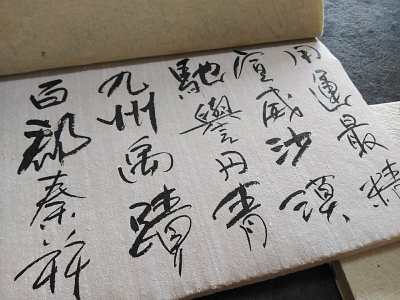 用運最精
宣威沙漠
馳譽丹青
九州禹蹟
百郡秦并